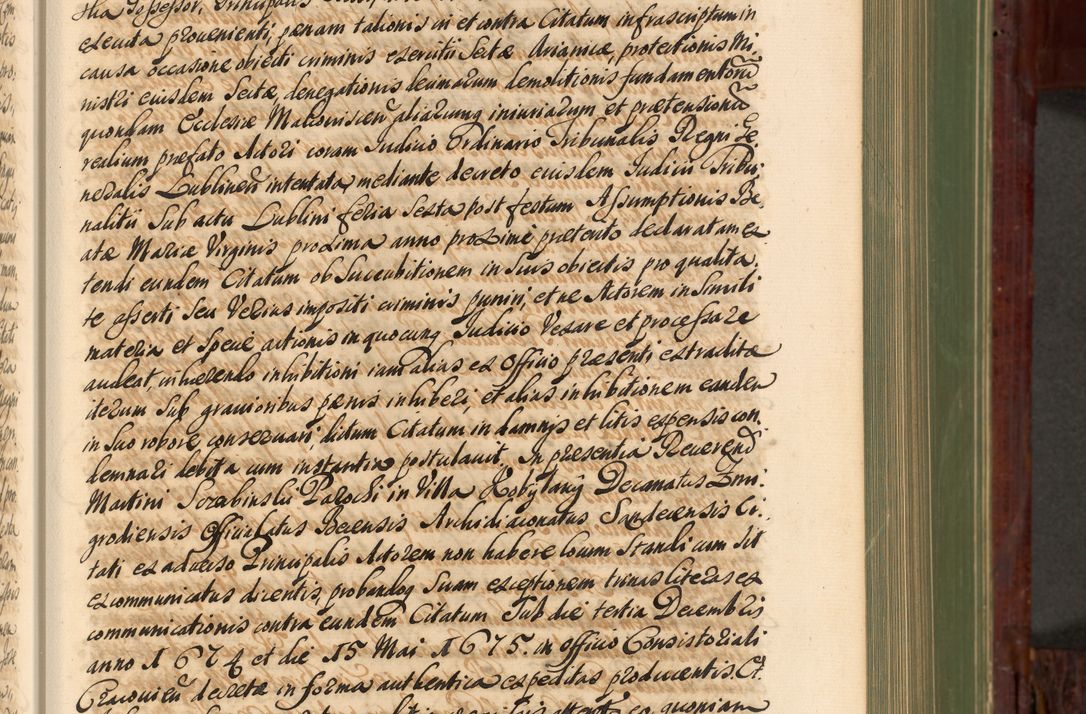 executa provenienti, pænam talionis in et contra Citatum infrascriptum in
causa occasione obiecti criminis exercitii Sectæ Arianicæ, protectionis Mi,
nistri eiusdem Sectæ, denegationis decimarum demolitionis fundamentorũ
quondam Ecclesiæ Malcoviscen̄ aliarumq iniuriarum et prætensionũ
realium præfato Actori coram Judicio Ordinario Tribunalis Regni Ge,
neralis Lublinen̄ intentata, mediante decreto eiusdem Judicii Tribu,
nalitii Sub actu Lublini feria Sexta post festum Assumptionis Be,
atæ Mariæ Virginis proxima anno proxime præterito declaratam ex,
tendi eundem Citatum ob Succubitionem in Suis obiectis pro qualita,
te asserti Seu Verius impositi criminis puniri, et ne Actorem in Simili
materia et Specie actionis in quocunq Judicio Vexare et processare
audeat, inhærendo inhibitioni iam alias ex Officio præsenti extraditæ
iterum Sub gravioribus pænis inhiberi, et alias inhibitionem eandem
in Suo robore conservari, dictum Citatum in damnis et litis expensis con,
demnari debita cum instantia postulavit. In præsentia Reverend
Martini Scrabinski Parochi in Villa Kobylany Decanatus Zmi,
grodiensis Officialatus Becensis Archidiaconatus Sandecensis Ci,
tati ex adverso Principalis Actorem non habere locum Standi cum Sit
excommunicatus dicentis, probandoq Suam exceptionem trinas literas ex
communicationis contra eundem Citatum Sub die tertia Decembris
anno 1674 et die 15 Mai 1675. in Officio Consistoriali
Cracovien̄ decretæ in forma authentica expeditas producentis. Et
quoniam